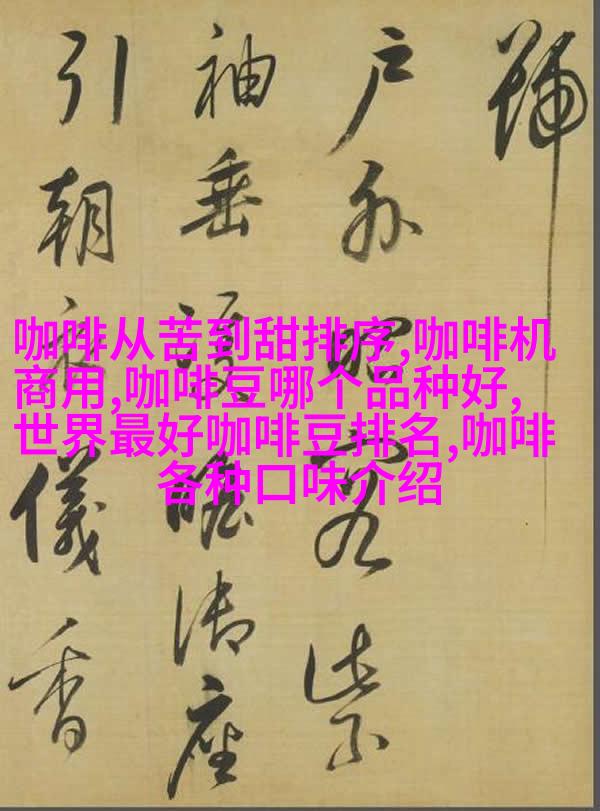 號
户外昭容紫
袖垂雙瞻御座
引朝儀香
咖啡从苦到甜排序,咖啡机
商用,咖啡豆哪个品种好,
世界最好咖啡豆排名,咖啡
各种口味介绍